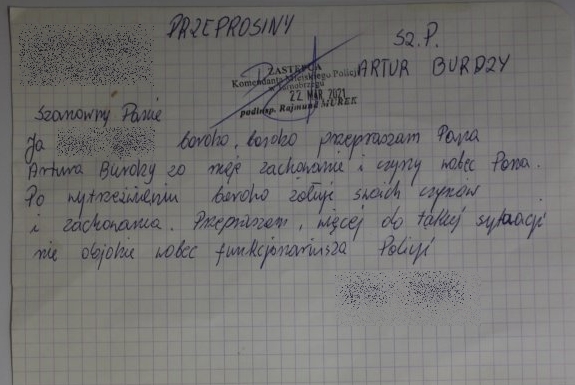 PRZEPROSINY
Sz. P.
ARTUR BURDZY
ZASTĘPCA
Komendanta Miejskiego Policji
w Tarnobrzegu
22 MAR 2021
podinsp. Rajmund MUREK
Szanowny Panie
Ja bardzo, bardzo przepraszam Pana
Artura Burdzy za moje zachowanie i czyny wobec Pana.
Po wytrzeźwieniu bardzo żałuję swoich czynów
i zachowania. Przepraszam, więcej do takiej sytuacji
nie dojdzie wobec funkcjonariusza Policji